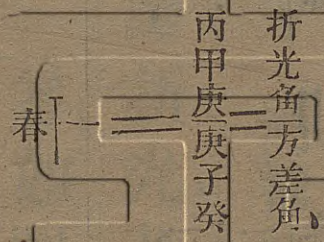 折光角一方差角
丙甲庚庚子癸
春